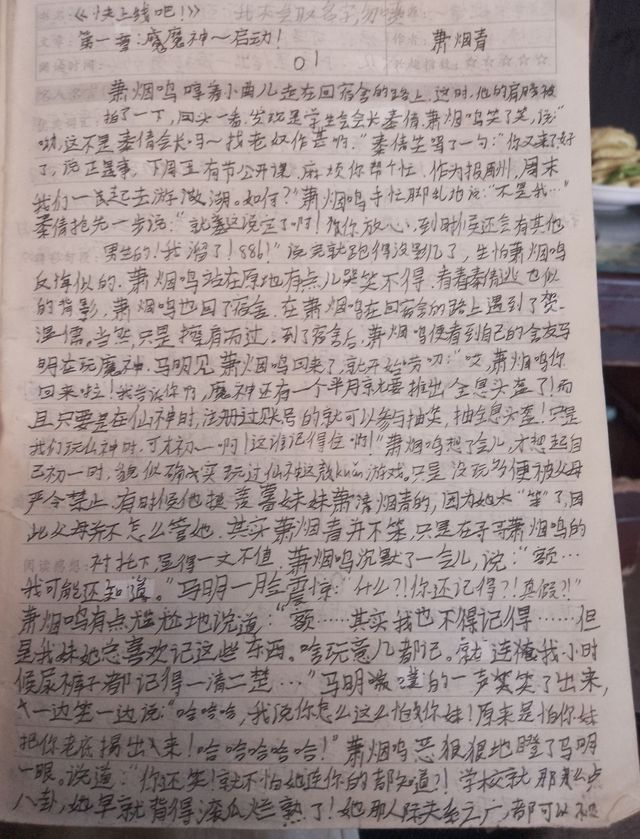 书名:《快上线吧!》 我不会取名字,勿喷
文章: 第一章:魔魔神~启动! 作者: 萧烟青
阅读时间: 01 长短指数:☆☆☆☆☆
萧烟鸣哼着小曲儿走在回宿舍的路上,这时,他的肩膀被
拍了一下,回头一看,发现是学生会会长秦倩,萧烟鸣笑了笑,说:"
呦,这不是秦倩会长吗~找老奴作甚啊。"秦倩笑骂了一句:"你又来了好
了,说正是事,下周五有节公开课,麻烦你帮个忙,作为报酬,周末
我们一起去游微湖。如何?"萧烟鸣手忙脚乱地说:"不是我…"
秦倩抢先一步说:"就这说定了啊!你放心,到时候还会有其他
男生的!我溜了!886!"说完就跑得没影儿了,生怕萧烟鸣
反悔似的。萧烟鸣站在原地有点儿哭笑不得,看着秦倩逃也似
的背影,萧烟鸣也回了宿舍。在萧烟鸣在回宿舍的路上遇到了贺
温儒。当然,只是擦肩而过。到了宿舍后,萧烟鸣便看到自己的舍友马
明在玩魔神,马明见萧烟鸣回来了,就开始劳叨:"哎,萧烟鸣你
回来啦!我告诉你啊,魔神还有一个半月就要推出全息头盔了!而
且只要是在仙神时,注册过账号的就可以参与抽奖,抽全息头盔!只是
我们玩仙神时,可才初一啊!这谁记得住啊!"萧烟鸣想了会儿,才想起自
己初一时,貌似确实玩过仙神这款游戏,只是没玩多便被父母
严令禁止。有时候他挺羡慕妹妹萧烟青的,因为她太"笨"了,因
此父母并不怎么管她。其实萧烟青并不笨,只是在哥哥萧烟鸣的
阅读感想: 衬托下显得一文不值,萧烟鸣沉默了一会儿,说:"额…
我可能还知道。"马明一脸震惊:"什么?!你还记得?!真假?!"
萧烟鸣有点尴尬地说道:"额……其实我也不得记得……但
是我妹她总喜欢记这些东西。啥玩意儿都记。就连俺我小时
候尿裤子都记得一清二楚…"马明噗嗤的一声笑笑了出来,
一边笑一边说:"哈哈哈,我说你怎么这么怕你妹!原来是怕你妹
把你老底揭出来!哈哈哈哈哈!"萧烟鸣恶狠狠地瞪了马明
一眼。说道:"你还笑!就不怕她连你的都知道?!学校就那么点
八卦,她早就背得滚瓜烂熟了!她那人际关系之广,都可以